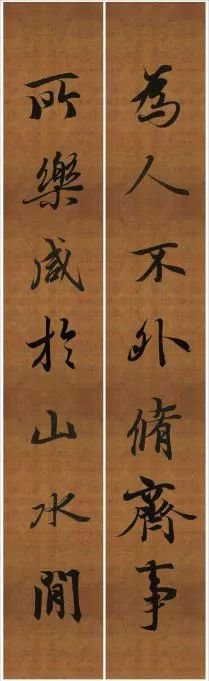 為人不外脩齊事
所樂咸於山水間